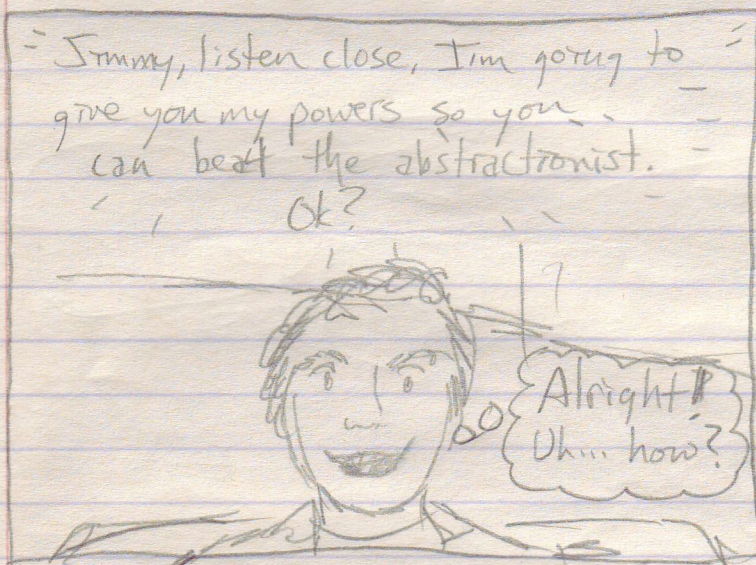 Jimmy, listen close, I'm going to
give you my powers so you
can beat the abstractionist.
Ok?
?
Alright!
Uh... how?